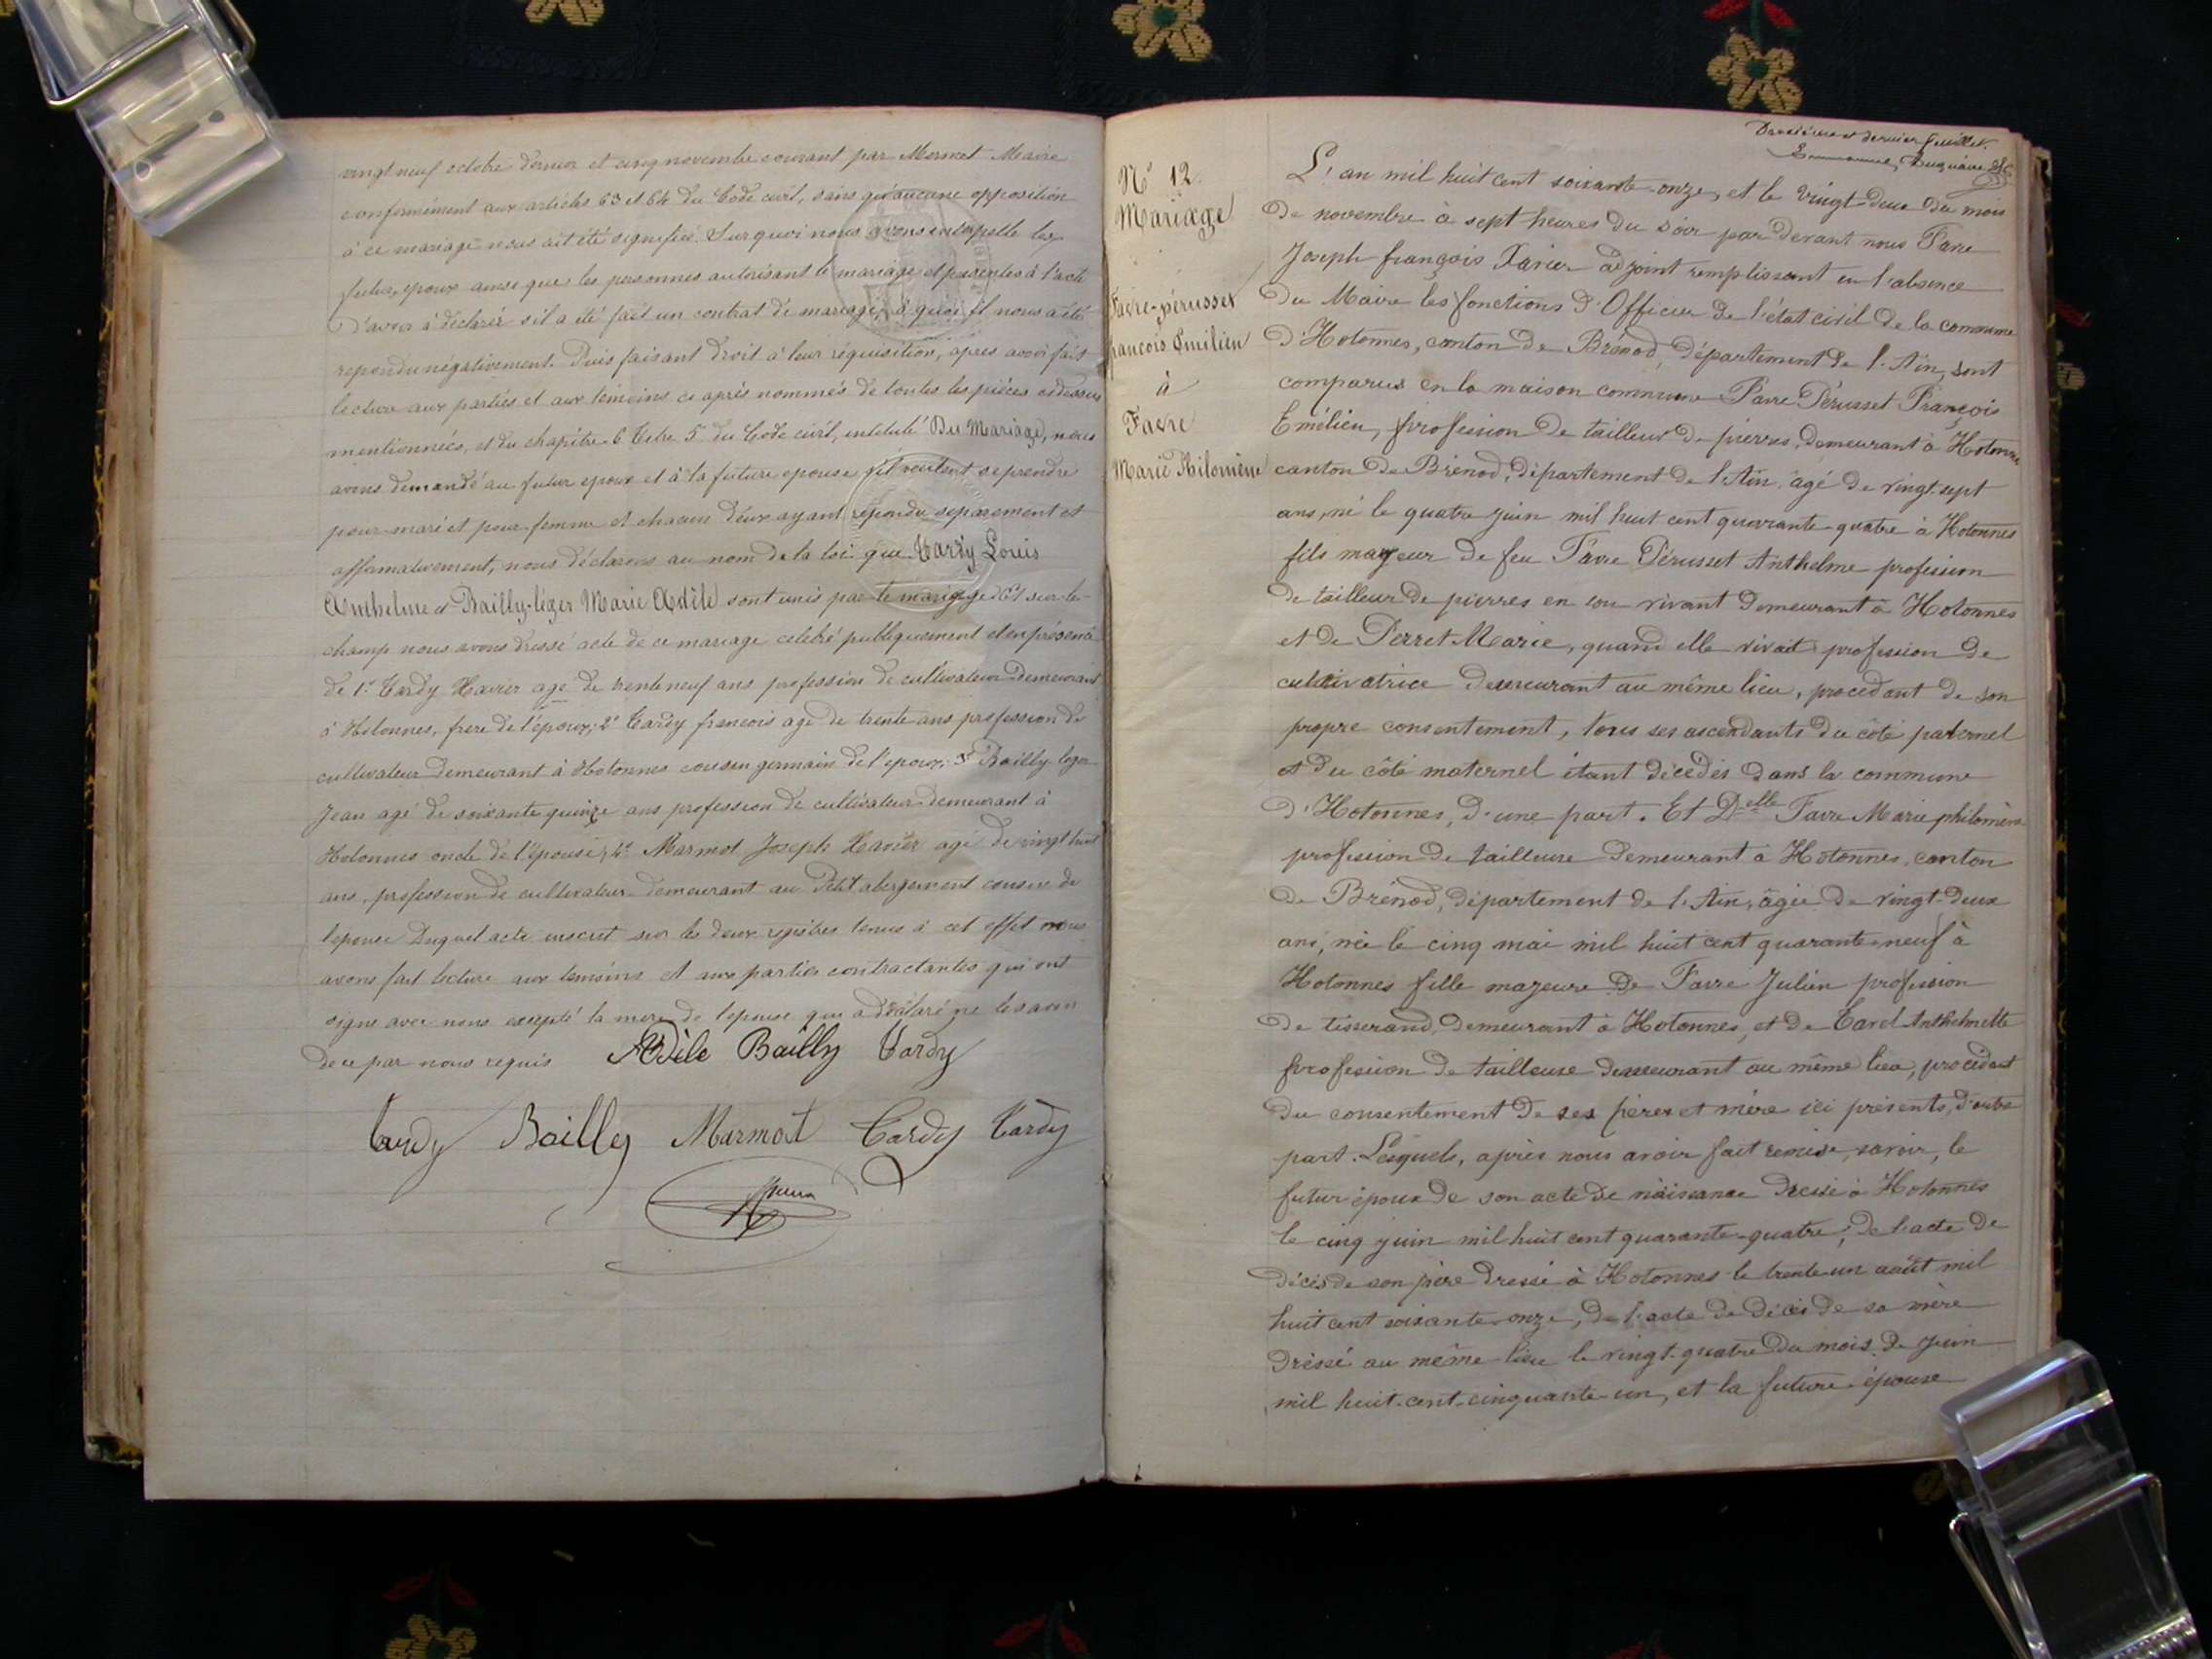 vingt neuf octobre dernier et cinq novembre courant par Mermet Maire
conformément aux articles 63 et 64 du Code civil, sans qu'aucune opposition
à ce mariage nous ait été signifiée. Sur quoi nous avons interpellé les
futurs époux ainsi que les personnes autorisant le mariage et présentes à l'acte
d'avoir à déclarer s'il a été fait un contrat de mariage, à quoi il nous a été
répondu négativement. Puis faisant droit à leur réquisition, après avoir fait
lecture aux parties et aux témoins ci après nommés de toutes les pièces cidessus
mentionnées, et du chapitre 6 Titre 5e du Code civil, intitulé Du Mariage, nous
avons demandé au futur époux et à la future épouse s'il veulent se prendre
pour mari et pour femme et chacun d'eux ayant répondu séparement et
affirmativement, nous déclarons au nom de la loi que Tardy Louis
Anthelme et Bailly-léger Marie Adèle sont unis par le mariage Et sur le
champ nous avons dressé acte de ce mariage célébré publiquement et en présence
de 1° Tardy Xavier agé de trente neuf ans profession de cultivateur demeurant
à Hotonnes, frère de l'époux; 2° Tardy francois agé de trente ans profession de
cultivateur demeurant à Hotonnes cousin germain de l'époux; 3° Bailly leger
Jean agé de soixante quinze ans profession de cultivateur demeurant à
Hotonnes oncle de l'épouse; 4° Marmot Joseph Xavier agé de vingt huit
ans, profession de cultivateur demeurant au Petit abergement cousin de
l'epouse Duquel acte inscrit sur les deux registres tenus à cet effet nous
avons fait lecture aux temoins et aux parties contractantes qui ont
signé avec nous excepté la mère de l'epouse qui a déclaré ne le savoir
de ce par nous requis Adèle Bailly Tardy
Tardy Bailly Marmot Tardy Tardy
Douzième et dernier feuillet.
N° 12.
Mariage
Favre-pérusset
francois Emilien
à
Favre
Marie Philomène
L'an mil huit cent soixante-onze, et le vingt-deux du mois
de novembre à sept heures du soir par devant nous Favre
Joseph françois Xavier adjoint remplissant en l'absence
du Maire les fonctions d'Officier de l'état civil de la commune
d'Hotonnes, canton de Brénod, département de l'Ain, sont
comparus en la maison commune Favre Pérusset François
Emilien, profession de tailleur de pierres, demeurant à Hotonnes
canton de Brénod, département de l'Ain, âgé de vingt-sept
ans, né le quatre juin mil huit cent quarante-quatre à Hotonnes
fils majeur de feu Favre Pérusset Anthelme profession
de tailleur de pierres en son vivant demeurant à Hotonnes
et de Perret Marie, quand elle vivait profession de
cultivatrice demeurant au même lieu, procédant de son
propre consentement, tous ses ascendants du côté paternel
et du côté maternel étant décédés dans la commune
d'Hotonnes, d'une part. Et Delle Favre Marie philomène
profession de tailleuse demeurant à Hotonnes, canton
de Brénod, département de l'Ain, âgée de vingt-deux
ans, née le cinq mai mil huit cent quarante-neuf à
Hotonnes fille majeure de Favre Julien profession
de tisserand, demeurant à Hotonnes, et de Carel Anthelmette
profession de tailleuse demeurant au même lieu, procédant
du consentement de ses pères et mère ici présents, d'autre
part. Lesquels, après nous avoir fait remise, savoir, le
futur époux de son acte de naissance dressé à Hotonnes
le cinq juin mil huit cent quarante-quatre; de l'acte de
décès de son père dressé à Hotonnes le trente un août mil
huit cent soixante-onze, de l'acte de décès de sa mère
dressé au même lieu le vingt-quatre du mois de juin
mil huit-cent-cinquante-un, et la future épouse